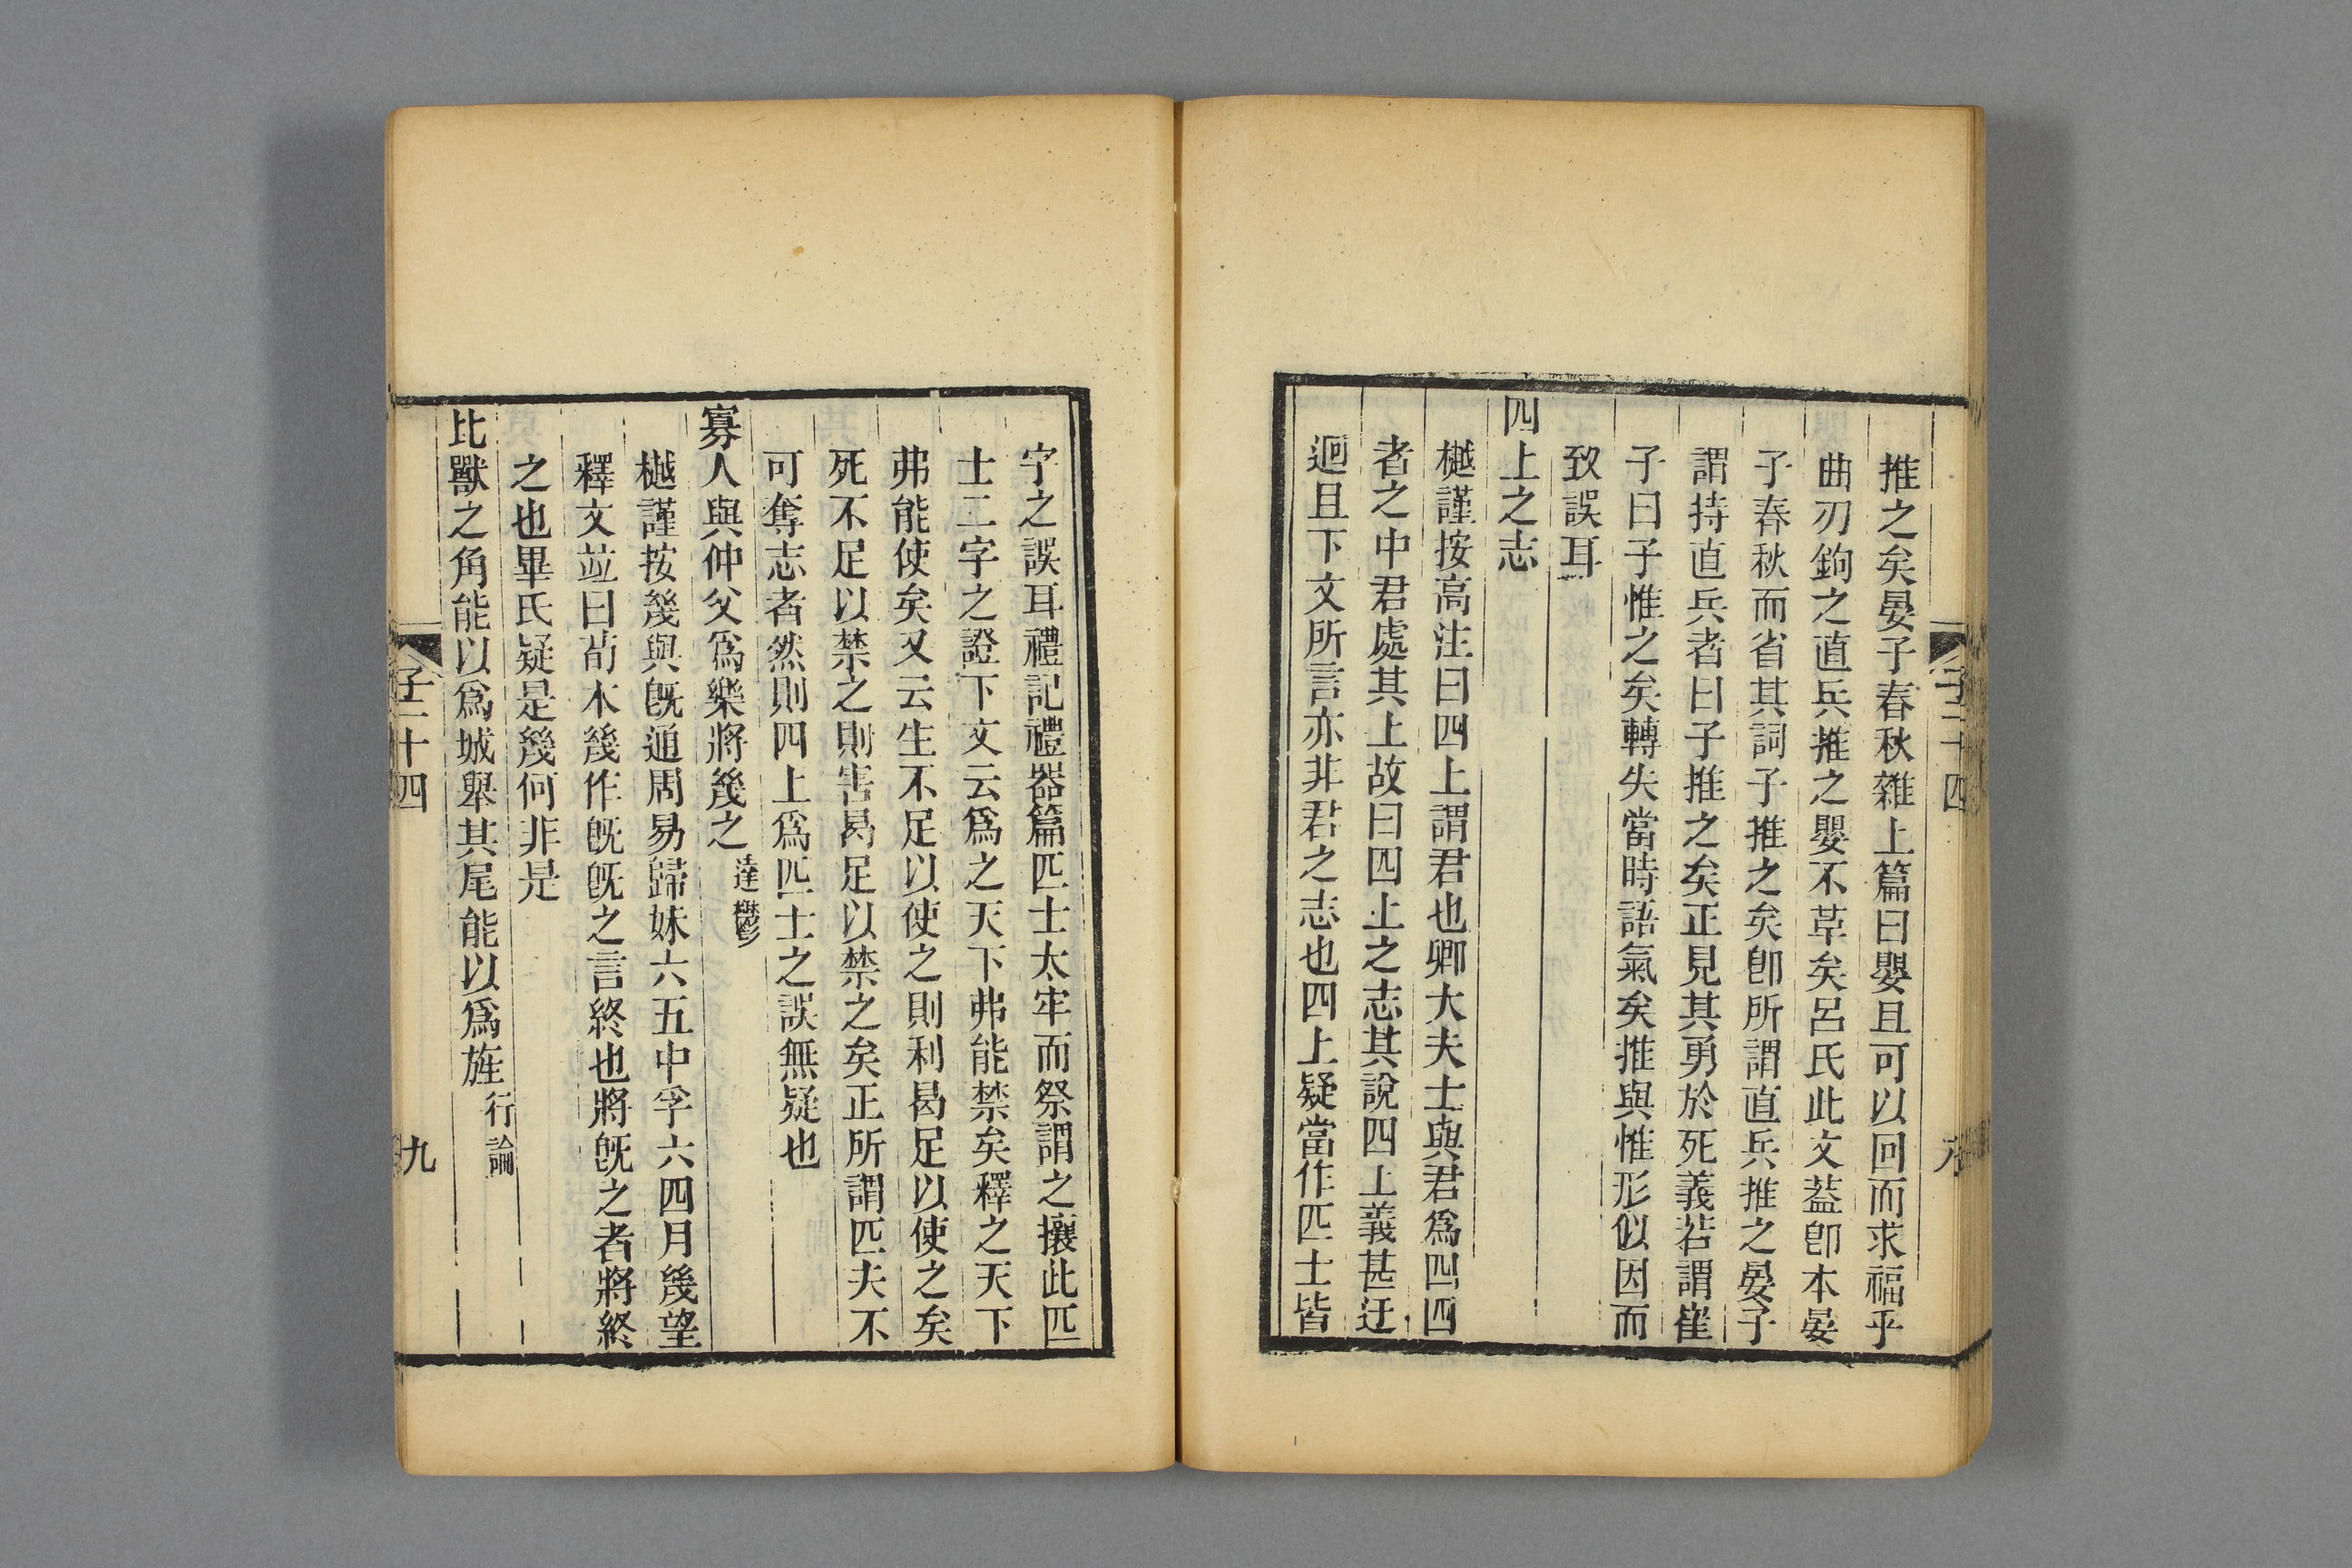 推之矣晏子春秋雜上篇曰嬰且可以回而求福乎
曲刃鉤之直兵推之嬰不革矣呂氏此文葢卽本晏
子春秋而省其詞子推之矣卽所謂直兵推之晏子
謂持直兵者曰子推之矣正見其勇於死義若謂崔
子曰子惟之矣轉失當時語氣矣推與惟形似因而
致誤耳
四上之志
樾謹按高注曰四上謂君也卿大夫士與君爲四四
者之中君處其上故曰四上之志其說四上義甚迂
迴且下文所言亦非君之志也四上疑當作匹士皆
字之誤耳禮記禮器篇匹士太牢而祭謂之攘此匹
士二字之證下文云爲之天下弗能禁矣釋之天下
弗能使矣又云生不足以使之則利曷足以使之矣
死不足以禁之則害曷足以禁之矣正所謂匹夫不
可奪志者然則四上爲匹士之誤無疑也
寡人與仲父爲樂將幾之達鬱
樾謹按幾與旣通周易歸妹六五中孚六四月幾望
釋文竝曰荀本幾作旣旣之言終也將旣之者將終
之也畢氏疑是幾何非是
比獸之角能以爲城舉其尾能以爲旌行論
子二十四
九